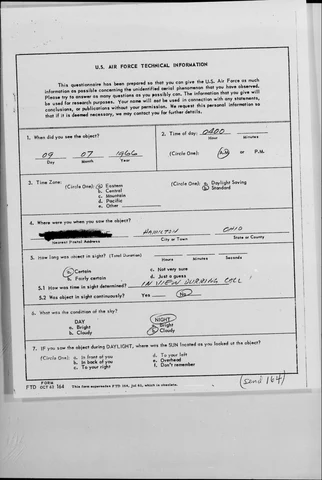 U.S. AIR FORCE TECHNICAL INFORMATION
This questionnaire has been prepared so that you can give the U.S. Air Force as much
information as possible concerning the unidentified aerial phenomenon that you have observed.
Please try to answer as many questions as you possibly can. The information that you give will
be used for research purposes. Your name will not be used in connection with any statements,
conclusions, or publications without your permission. We request this personal information so
that if it is deemed necessary, we may contact you for further details.
1. When did you see the object?
09 07 1966
Day Month Year
2. Time of day: 0400
Hour Minutes
(Circle One): A.M. or P.M.
3. Time Zone:
(Circle One): a. Eastern
b. Central
c. Mountain
d. Pacific
e. Other
(Circle One): a. Daylight Saving
b. Standard
4. Where were you when you saw the object?
HAMILTON OHIO
Nearest Postal Address City or Town State or County
5. How long was object in sight? (Total Duration)
Hours Minutes Seconds
a. Certain c. Not very sure
b. Fairly certain d. Just a guess
5.1 How was time in sight determined? IN VIEW DURING CALL
5.2 Was object in sight continuously? Yes No
6. What was the condition of the sky?
DAY NIGHT
a. Bright a. Bright
b. Cloudy b. Cloudy
7. IF you saw the object during DAYLIGHT, where was the SUN located as you looked at the object?
(Circle One): a. In front of you d. To your left
b. In back of you e. Overhead
c. To your right f. Don't remember
FORM
FTD OCT 62 164 This form supersedes FTD 164, Jul 61, which is obsolete.
(Send 164)